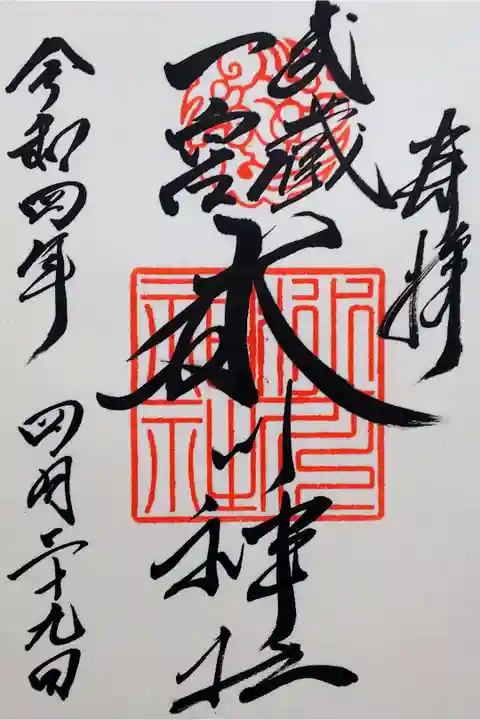 奉拝
武蔵
一宮
氷川神社
令和四年 四月二十九日